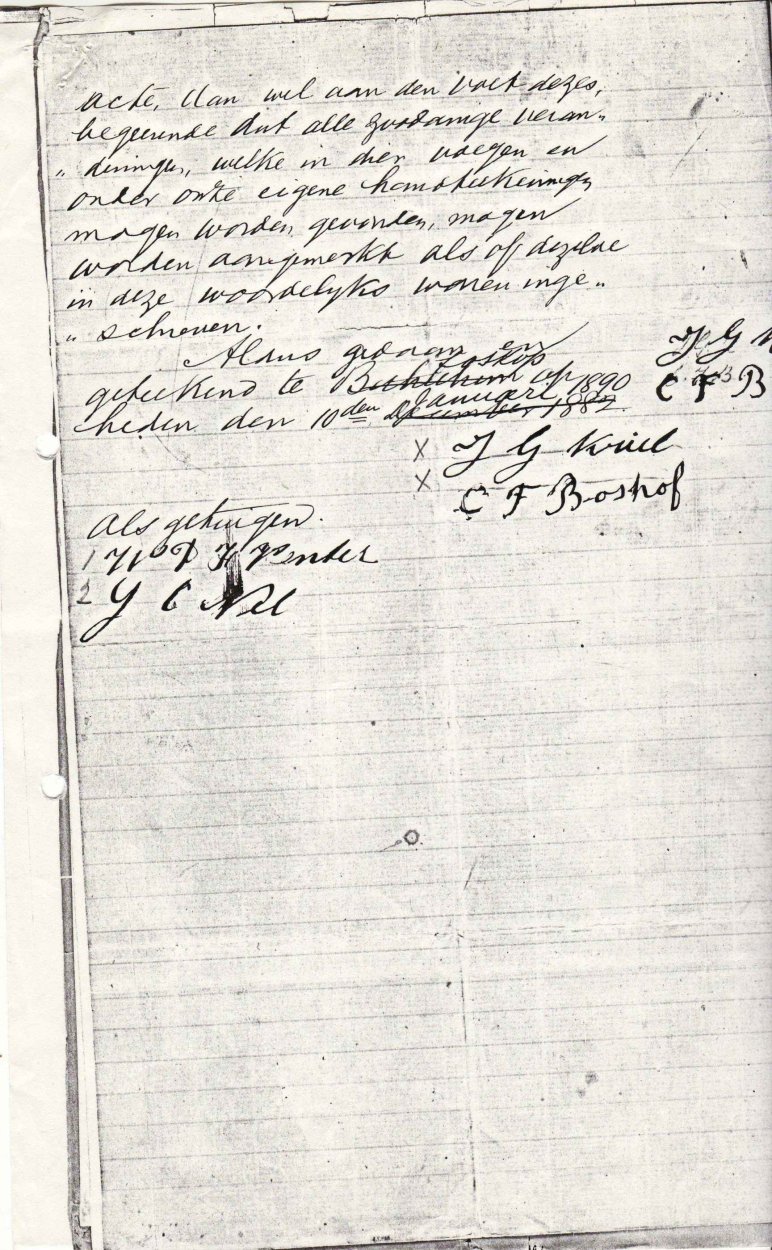 acte, dan wel aan den voet dezes,
begeerende dat alle zoodanige veran„
„ deringen, welke in dier voegen en
onder onze eigene handteekeningen
mogen worden gevonden, mogen
worden aangemerkt als of dezelve
in deze woordelyks waren inge„
„ schreven.
Aldus gedaan en
geteekend te Bethlehem op
heden den 10den Januari 1890
December 1889
J G
C F B
X J G Kriel
X C F Boshof
Als getuigen.
1
2 J C Nel